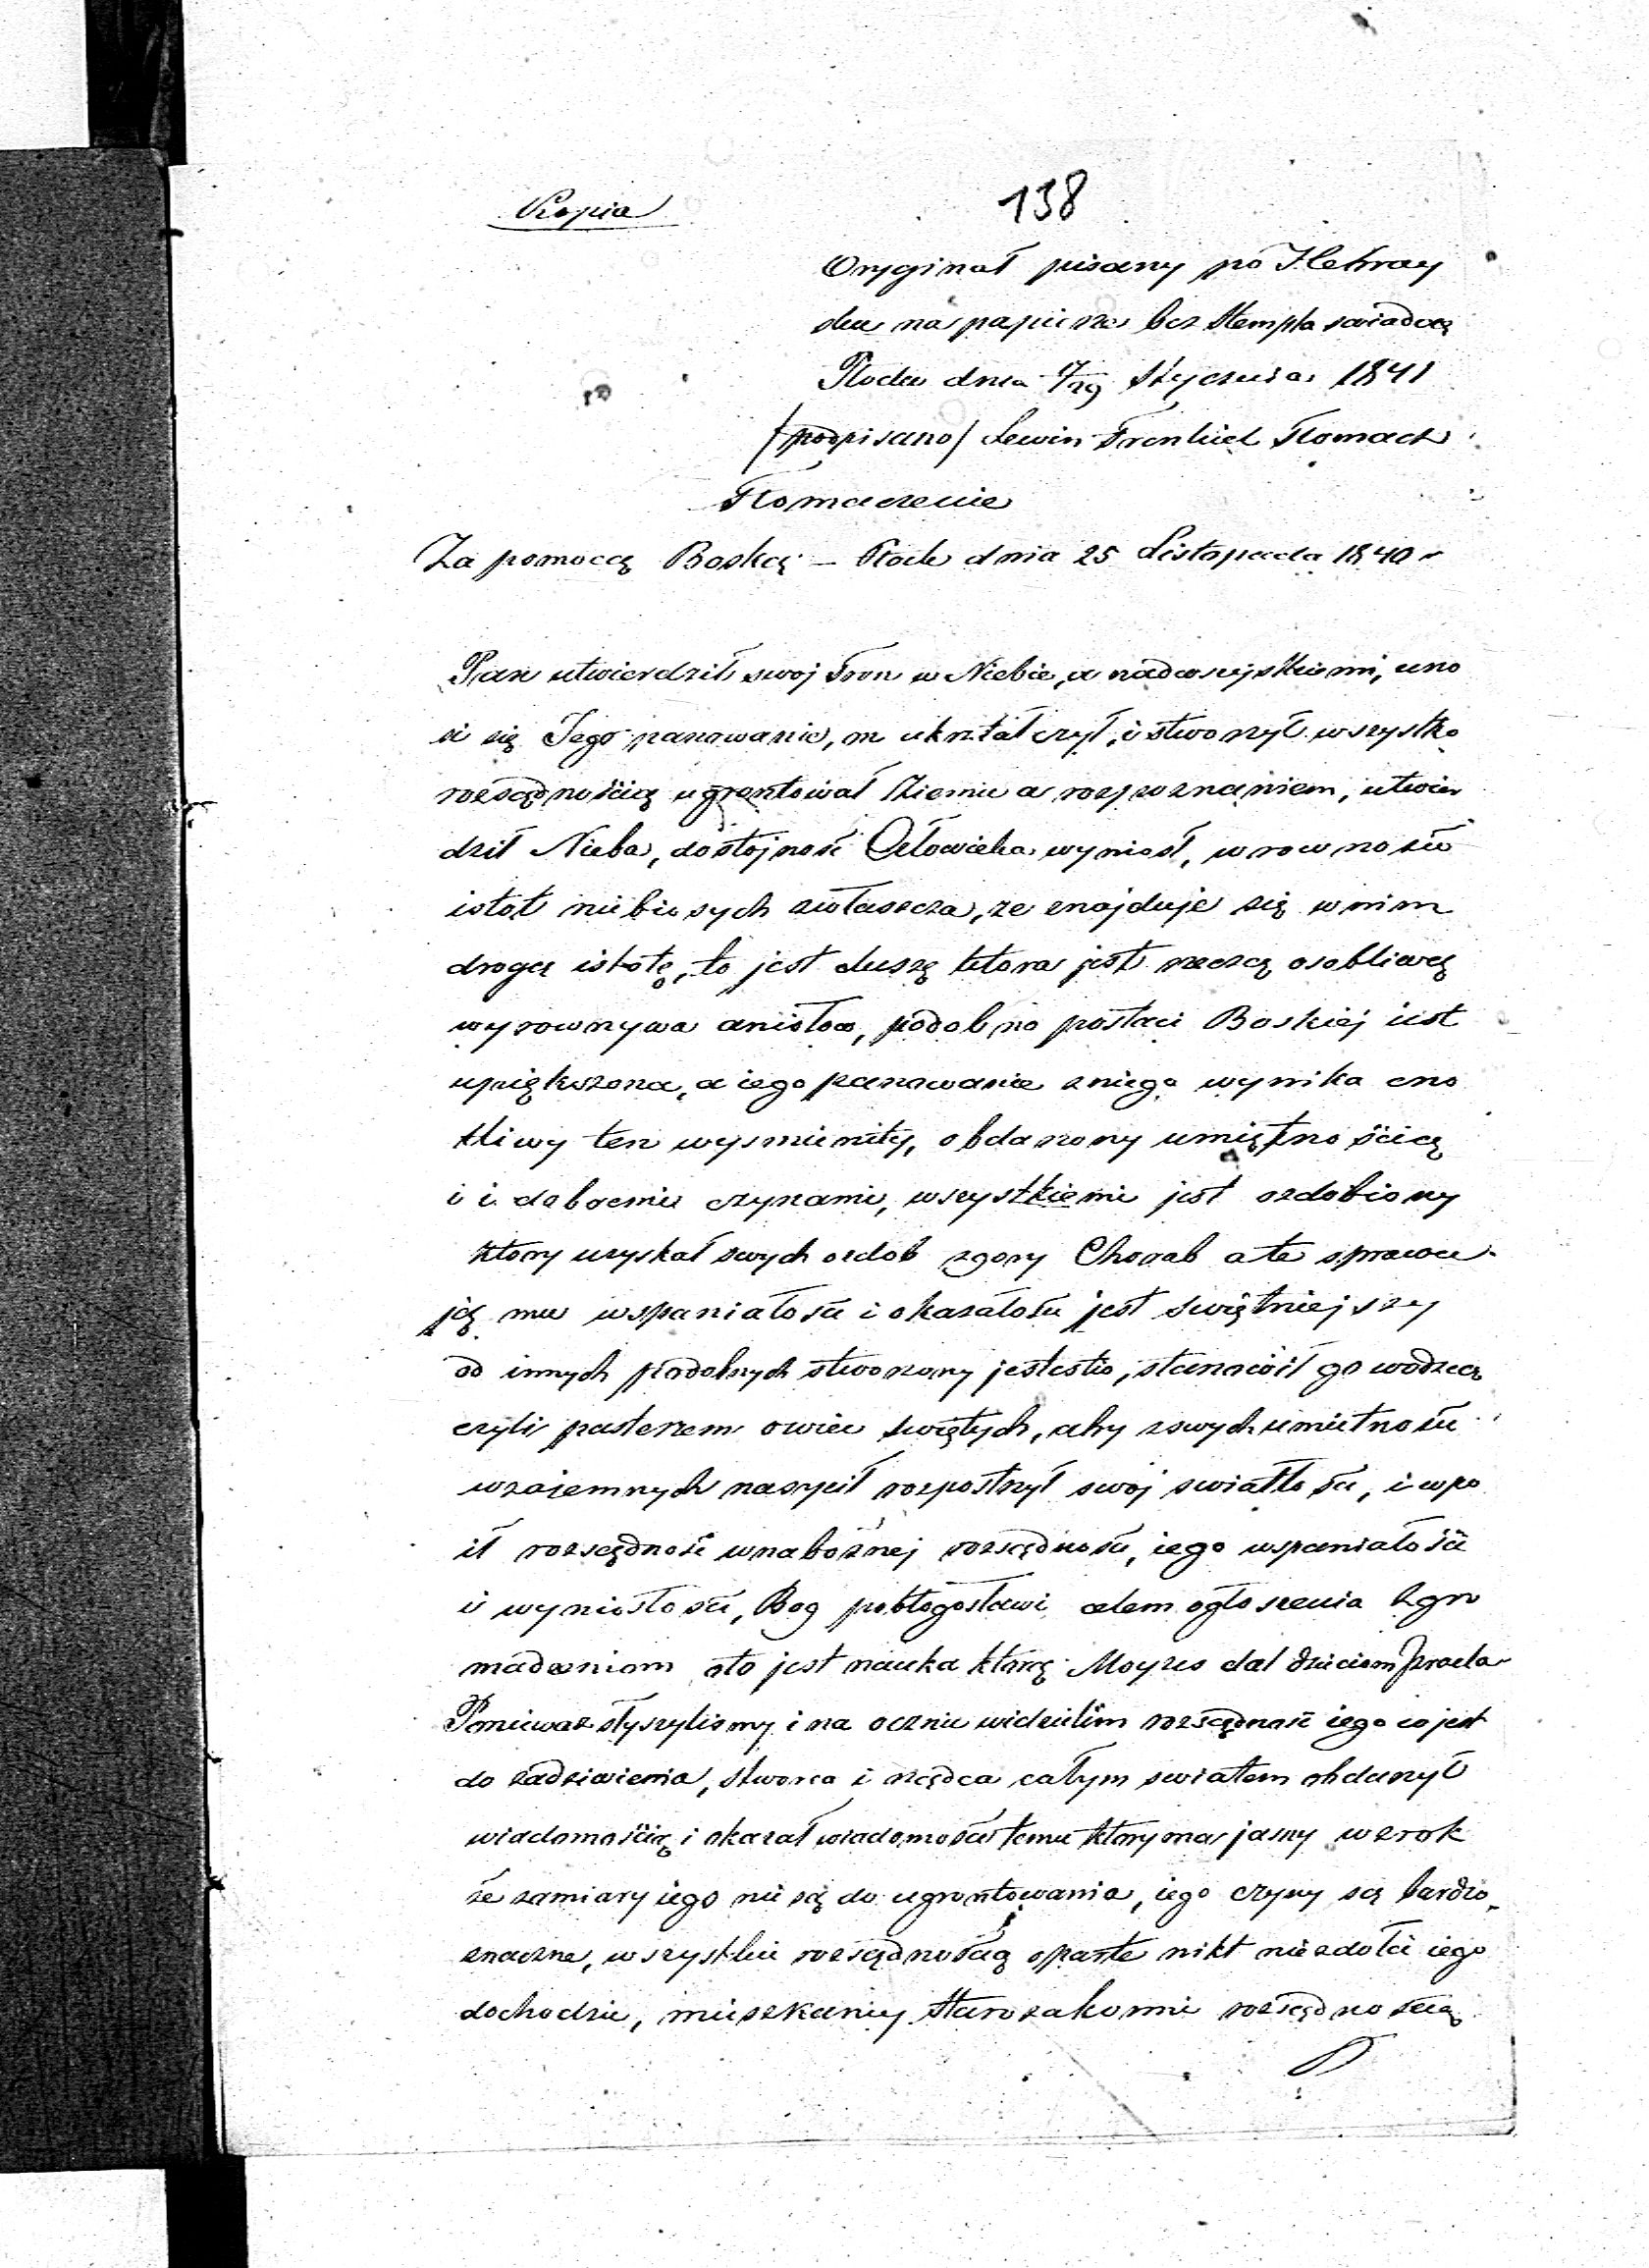 Kopia
138
Oryginał pisany po Hebray
sku na papierze bez stempla świadczę
Płock dnia 17/29 Stycznia 1841
/podpisano/ Lewin Frenkiel Tłomacz
Tłomaczenie
Za pomocą Boską – Płock dnia 25 Listopada 1840 r
Pan utwierdził swoj Tron w Niebie, a nad wszystkiemi, uno
si się Jego panowanie, on ukształczył, i stworzył wszystko
rozsądnością ugrontował Ziemie a rozpoznaniem, utwier
dził Nieba, dostojność Człowieka wyniosł, w rowności
istot niebieskych zwłaszcza, że znajduje się w nim
droga istotę, to jest duszę ktora jest rzeczą osobliwą
wyrownywa aniołow, podobno postaci Boskiej iest
upiększona, a iego panowanie z niego wynika cno
tliwy ten wysmienity, obdarzony umiętnościcą
i i dobremi czynami, wszystkiemi jest ozdobiony
ktory uzyskał swych ozdob zgory Chorab a te sprawu
ją mu wspaniałości i okazałości jest świętniejszy
od innych podobnych stworzony jestestw, stanowił go wodzcą
czyli pasterzem owiec świętych, aby zswych umietności
wzajemnych nasycił rozpostrzył swoj swiatłości, i wpo
ił rozsądność w nabożnej rozsądności, iego wspaniałości
i wyniosłości, Bog pobłogosławi celem ogłoszenia Zgro
madzeniom oto jest nauka którą Moyzes dał dzieciom Izraela
Ponieważ słyszylismy i na ocznie widzielim rozsądność iego co jest
do zadziwienia, stworca i rządca całym swiatem obdarzył
wiadomością i okazał wiadomości temu ktory ma jasny wzrok
że zamiary iego nie są do ugrontowania, iego czyny są bardzo
znaczne, wszystkie rozsądnością oparte nikt niezdoła iego
dochodzic, mieszkancy Starozakonni rozsądnością